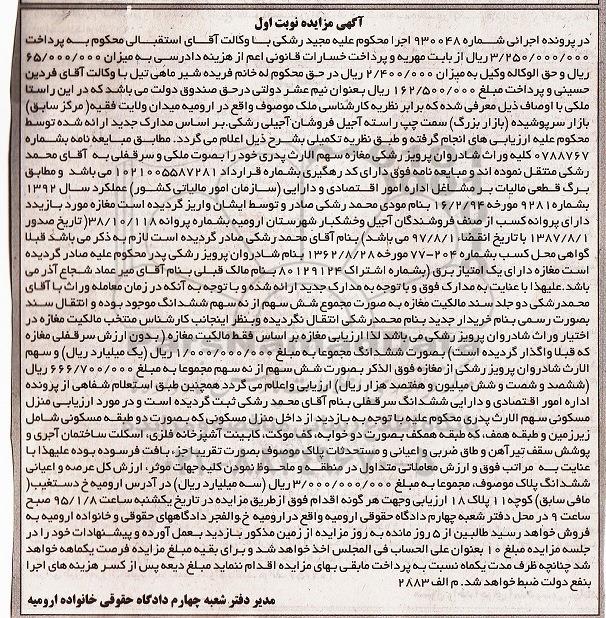 آگهی مزایده نوبت اول
در پرونده اجرائی شماره ۹۳۰۰۴۸ اجرا محکوم علیه مجید رشکی با وکالت آقای استقبالی محکوم به پرداخت
۳/۲۵۰/۰۰۰/۰۰۰ ریال از بابت مهریه و پرداخت خسارات قانونی اعم از هزینه دادرسی به میزان ۶۵/۰۰۰/۰۰۰
ریال و حق الوکاله وکیل به میزان ۲/۴۰۰/۰۰۰ ریال در حق محکوم له خانم فریده شیر ماهی تیل با وکالت آقای فردین
حسینی و پرداخت مبلغ ۱۶۲/۵۰۰/۰۰۰ ریال بعنوان نیم عشر دولتی درحق صندوق دولت می باشد که در این راستا
ملکی با اوصاف ذیل معرفی شده که برابر نظریه کارشناسی ملک موصوف واقع در ارومیه میدان ولایت فقیه( مرکز سابق)
بازار سرپوشیده (بازار بزرگ) سمت چپ راسته آجیل فروشان آجیلی رشکی.بر اساس مدارک جدید ارائه شده توسط
محکوم علیه ارزیابی های انجام گرفته و طبق نظریه تکمیلی بشرح ذیل اعلام می گردد. مطابق مبایعه نامه بشماره
۰۷۸۸۷۶۷ کلیه وراث شادروان پرویز رشکی مغازه سهم الارث پدری خود را بصورت ملکی و سرقفلی به آقای محمد
رشکی منتقل نموده اند و مبایعه نامه فوق دارای کد رهگیری بشماره قرارداد ۱۰۲۱۰۰۵۵۸۷۲۸۱ می باشد و مطابق
برگ قطعی مالیات بر مشاغل اداره امور اقتصادی و دارایی (سازمان امور مالیاتی کشور) عملکرد سال ۱۳۹۲
بشماره ۹۲۸۱ مورخه ۱۶/۲/۹۴ بنام مودی محمد رشکی صادر و توسط ایشان واریز گردیده است مغازه مورد بازدید
دارای پروانه کسب از صنف فروشندگان آجیل وخشکبار شهرستان ارومیه بشماره پروانه ۳۸/۱۰/۱۱۸( تاریخ صدور
۱۳۸۷/۸/۱ با تاریخ انقضاء ۹۷/۸/۱ می باشد) بنام آقای محمد رشکی صادر گردیده است لازم به ذکر می باشد قبلا
گواهی محل کسب بشماره ۲۰۴-۷۷ مورخه ۱۳۶۲/۸/۲۸ بنام شادروان پرویز رشکی پدر محکوم علیه صادر گردیده
است مغازه دارای یک امتیاز برق (بشماره اشتراک ۸۰۱۲۹۱۲۴ بنام مالک قبلی بنام آقای میر عماد شجاع آذر می
باشد.علیهذا با عنایت به مدارک فوق و با توجه به مدارک جدید ارائه شده و با توجه به آنکه در زمان معامله وراث با آقای
محمدرشکی دو جلد سند مالکیت مغازه به صورت مجموع شش سهم از نه سهم ششدانگ موجود بوده و انتقال سند
بصورت رسمی بنام خریدار جدید بنام محمدرشکی انتقال نگردیده وبنظر اینجانب کارشناس منتخب مالکیت مغازه در
اختیار وراث شادروان پرویز رشکی می باشد لذا ارزیابی مغازه بر اساس فقط مالکیت مغازه ( بدون ارزش سرقفلی مغازه
که قبلا واگذار گردیده است) بصورت ششدانگ مجموعا به مبلغ ۱/۰۰۰/۰۰۰/۰۰۰ ریال (یک میلیارد ریال) و سهم
الارث شادروان پرویز رشکی از مغازه فوق الذکر بصورت شش سهم از نه سهم مجموعا به مبلغ ۶۶۶/۷۰۰/۰۰۰ ریال
(ششصد و شصت و شش میلیون و هفتصد هزار ریال) ارزیابی واعلام می گردد همچنین طبق استعلام شفاهی از پرونده
اداره امور اقتصادی و دارایی ششدانگ سرقفلی بنام آقای محمد رشکی ثبت گردیده است و در مورد ارزیابی منزل
مسکونی سهم الارث پدری محکوم علیه با توجه به بازدید از داخل منزل مسکونی که بصورت دو طبقه مسکونی شامل
زیرزمین و طبقه همف، که طبقه همکف بصورت دو خوابه، کف موکت، کابینت آشپزخانه فلزی، اسکلت ساختمان آجری و
پوشش سقف تیرآهن و طاق ضربی و اعیانی و مستحدثات پلاک موصوف بصورت تقریبا جز، بافت فرسوده بوده علیهذا با
عنایت به مراتب فوق و ارزش معاملاتی متداول در منطقه و با در نظر گرفتن کلیه جهات موثر، ارزش کل عرصه و اعیانی
ششدانگ پلاک موصوف، مجموعا به مبلغ ۳/۰۰۰/۰۰۰/۰۰۰ ریال (سه میلیارد ریال) در آدرس ارومیه خ دستغیب(
مافی سابق) کوچه۱۱ پلاک۱۸ ارزیابی وجهت هر گونه اقدام فوق ازطریق مزایده در تاریخ یکشنبه ساعت ۹۵/۱/۸ صبح
ساعت ۹ در محل دفتر شعبه چهارم دادگاه حقوقی ارومیه واقع در ارومیه خ.والفجر دادگاههای حقوقی و خانواده ارومیه به
فروش خواهد رسید طالبین از ۵ روز مانده به روز مزایده از زمین مذکور بازدید بعمل آورده و پیشنهادات خود را در
جلسه مزایده مبلغ ۱۰ بعنوان علی الحساب فی المجلس اخذ خواهد شد و برای بقیه مبلغ مزایده فرصت یکماهه خواهد
شد چنانچه ظرف مدت یکماه نسبت به پرداخت مابقی بهای مزایده اقدام ننماید مبلغ دیعه پس از کسر هزینه های اجرا
بنفع دولت ضبط خواهد شد. م الف ۲۸۸۳
مدیر دفتر شعبه چهارم دادگاه حقوقی خانواده ارومیه